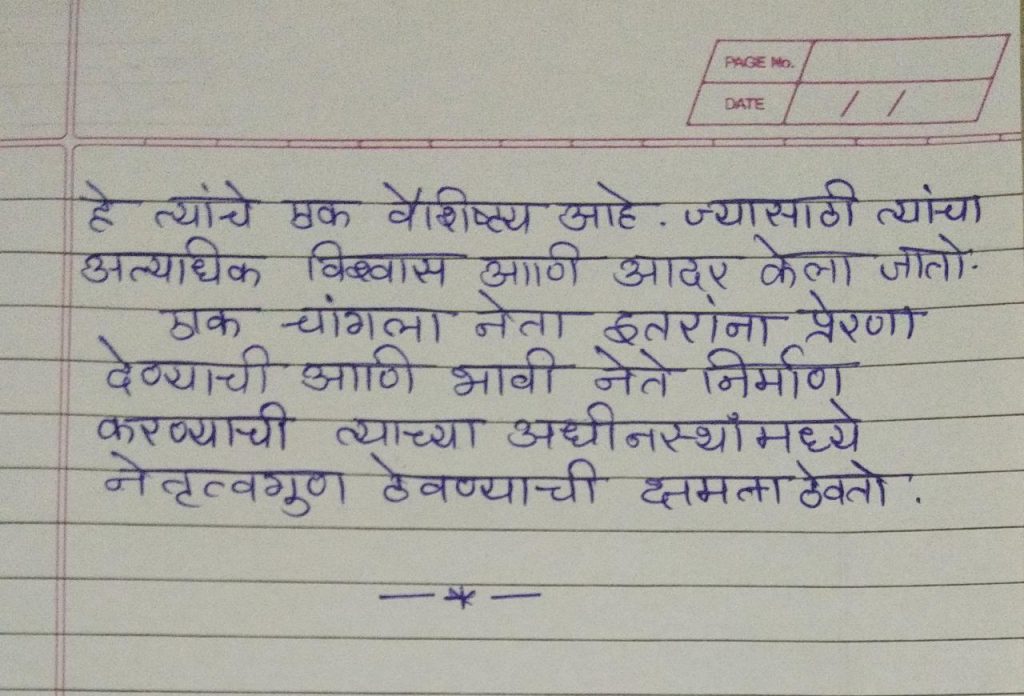 PAGE No.
DATE / /
हे त्यांचे एक वैशिष्ट्य आहे. ज्यासाठी त्यांचा
अत्याधिक विश्वास आणि आदर केला जातो.
एक चांगला नेता इतरांना प्रेरणा
देण्याची आणि भावी नेते निर्माण
करण्याची त्याच्या अधीनस्थांमध्ये
नेतृत्वगुण ठेवण्याची क्षमता ठेवतो.
— * —